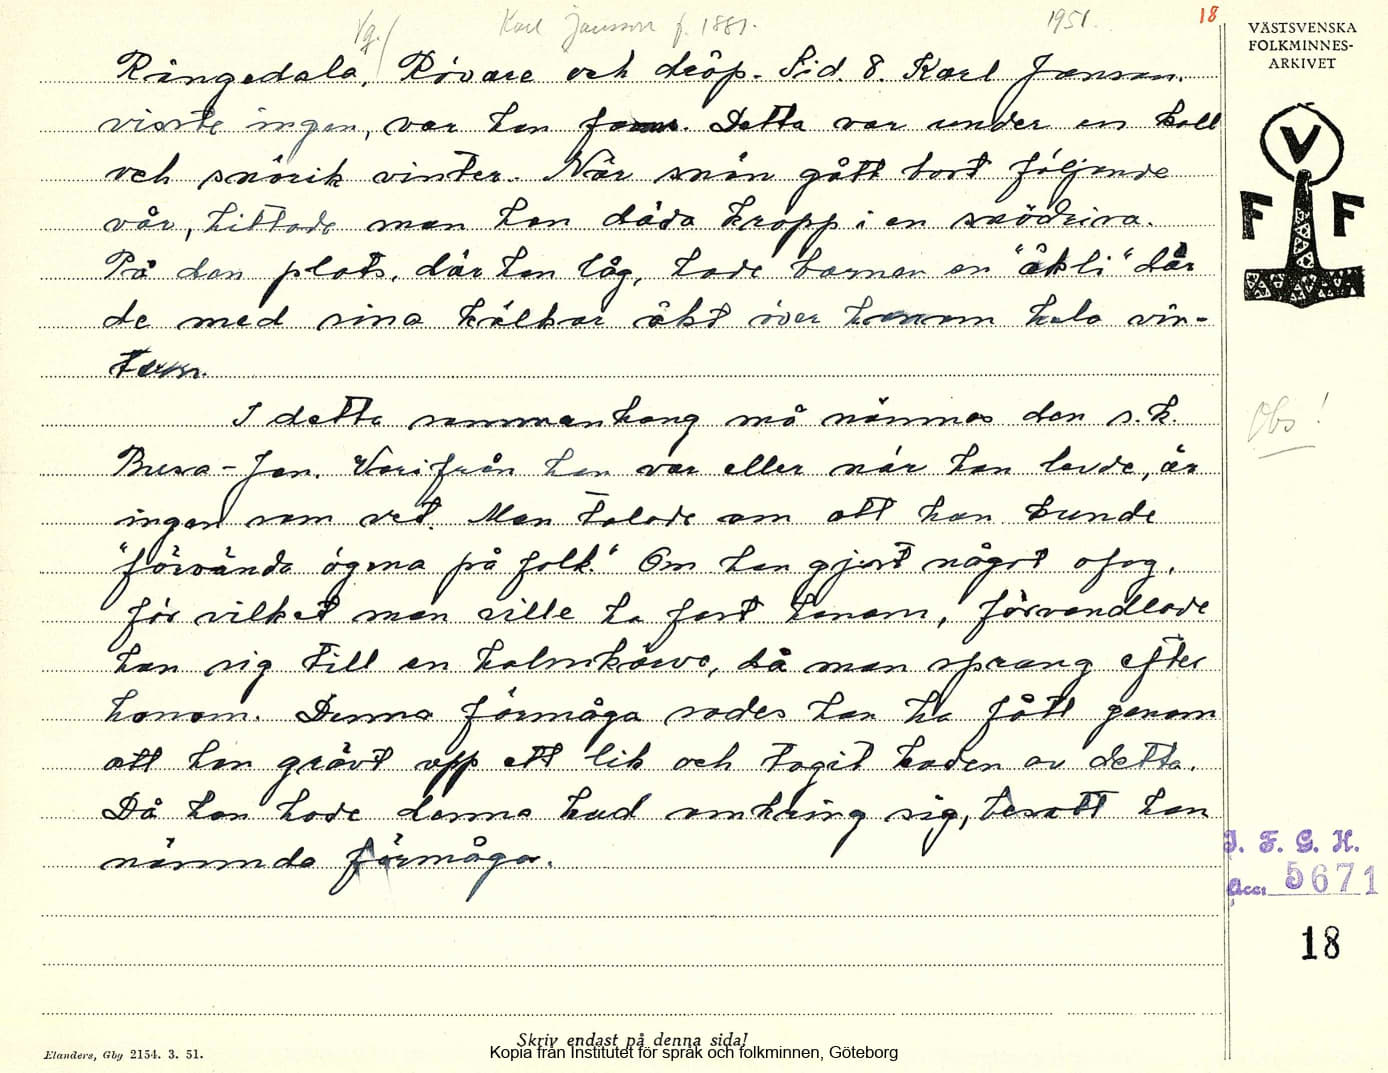 Vg. Karl Jansson f. 1881. 1951. 18
Rångedala. Rövare och dråp. Sid. 8. Karl Janson.
visste ingen, var han fanns. Detta var under en kall
och snörik vinter. När snön gått bort följande
vår, hittade man han döda kropp i en snödriva.
På den plats, där han låg, hade barnen en "åkli" där
de med sina kälkar åkt över honom hela vin-
tern.
I detta sammanhang må nämnas den s.k.
Busa-Jan. Varifrån han var eller när han levde, är
ingen som vet. Man talade om att han kunde
"förvända ögena på folk." Om han gjort något ofog,
för vilket man ville ha fast honom, förvandlade
han sig till en halmkärve, då man sprang efter
honom. Denna förmåga sades han ha fått genom
att han grävt upp ett lik och tagit huden av detta.
Då han hade denna hud omkring sig, besatt han
nämnda förmåga.
VÄSTSVENSKA
FOLKMINNES-
ARKIVET
V
F F
Obs!
I. F. G. H.
Acc: 5671
18
Skriv endast på denna sida!
Elanders, Gbg 2154. 3. 51.
Kopia från Institutet för språk och folkminnen, Göteborg